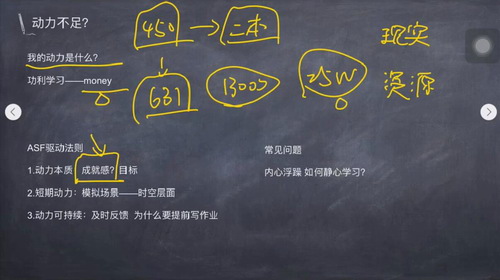 动力不足?
450 → 二本 现实
我的动力是什么?
功利学习——money
631 1300J 25W 资源
ASF驱动法则
1.动力本质 成就感? 目标
2.短期动力：模拟场景——时空层面
3.动力可持续：及时反馈 为什么要提前写作业
常见问题
内心浮躁 如何静心学习?